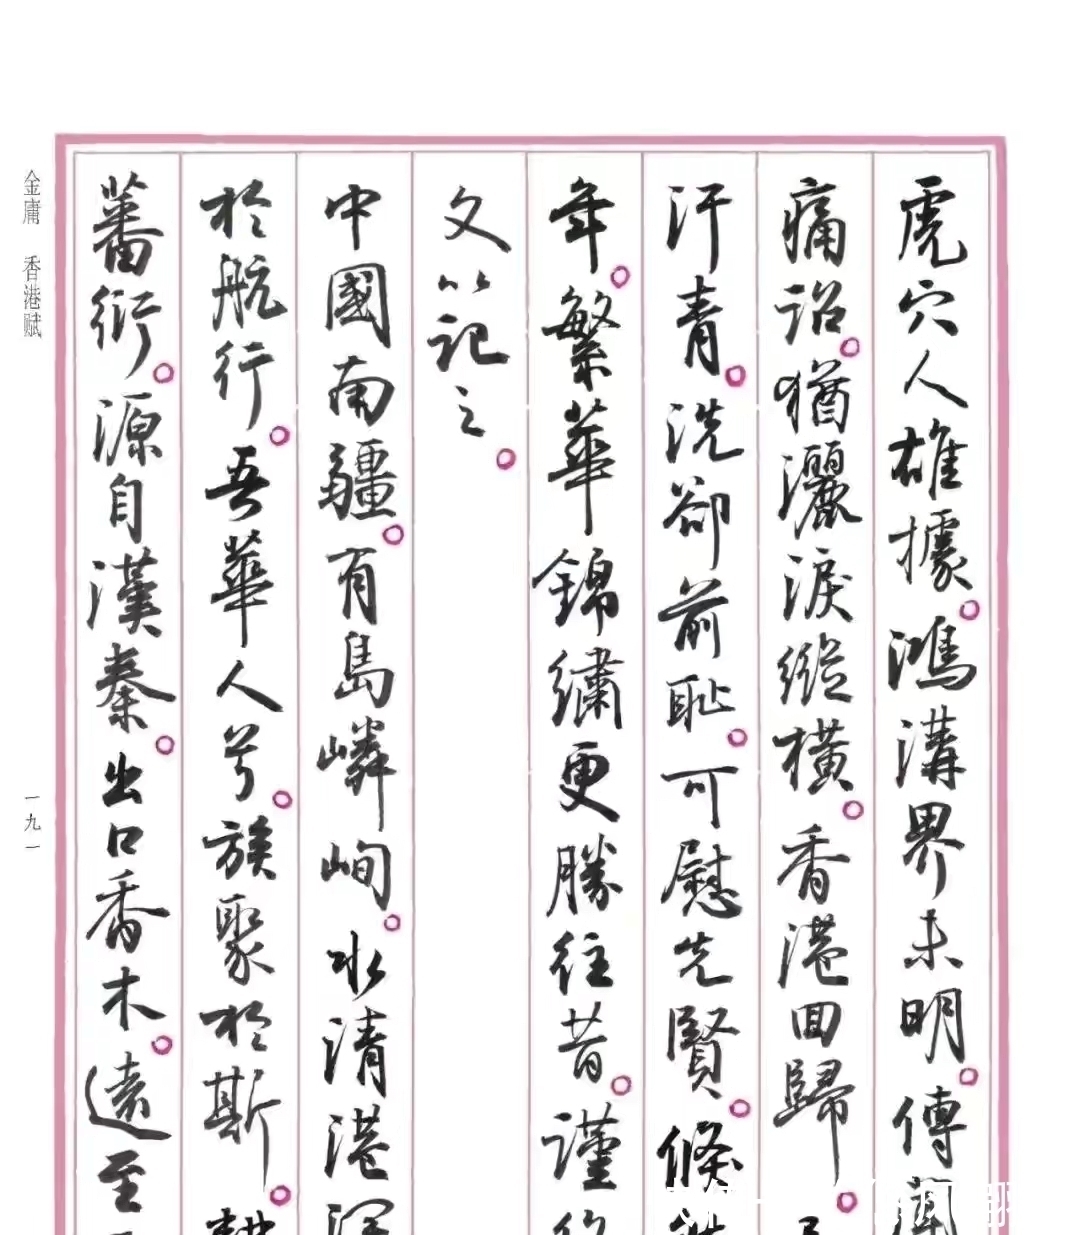 虎穴人雄據。鴻溝界未明。傳聞
痛詔。猶灑淚縱橫。香港回歸。
汗青。洗卻前恥。可慰先賢。倏
年。繁華錦繡更勝往昔。謹
文以記之。
中國南疆。有島嶙峋。水清港深
於航行。吾華人兮。族聚於斯。耕
蕃衍。源自漢秦。出口香木。遠至
金庸 香港赋
一九一